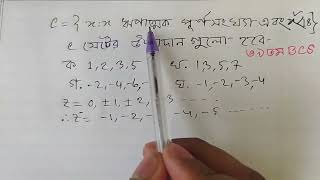 C = { x : x ঋণাত্মক পূর্ণ সংখ্যা এবং
C সেটের উপাদান গুলো হবে-
৩৬তম BCS
ক. 1, 2, 3, 5 খ. 1, 3, 5, 7
গ. -2, -4, -6, ঘ. -1, -2, -3, -4
z = 0, ±1, ±2, 3
∴ z⁻ = -1, -2, -4, -5